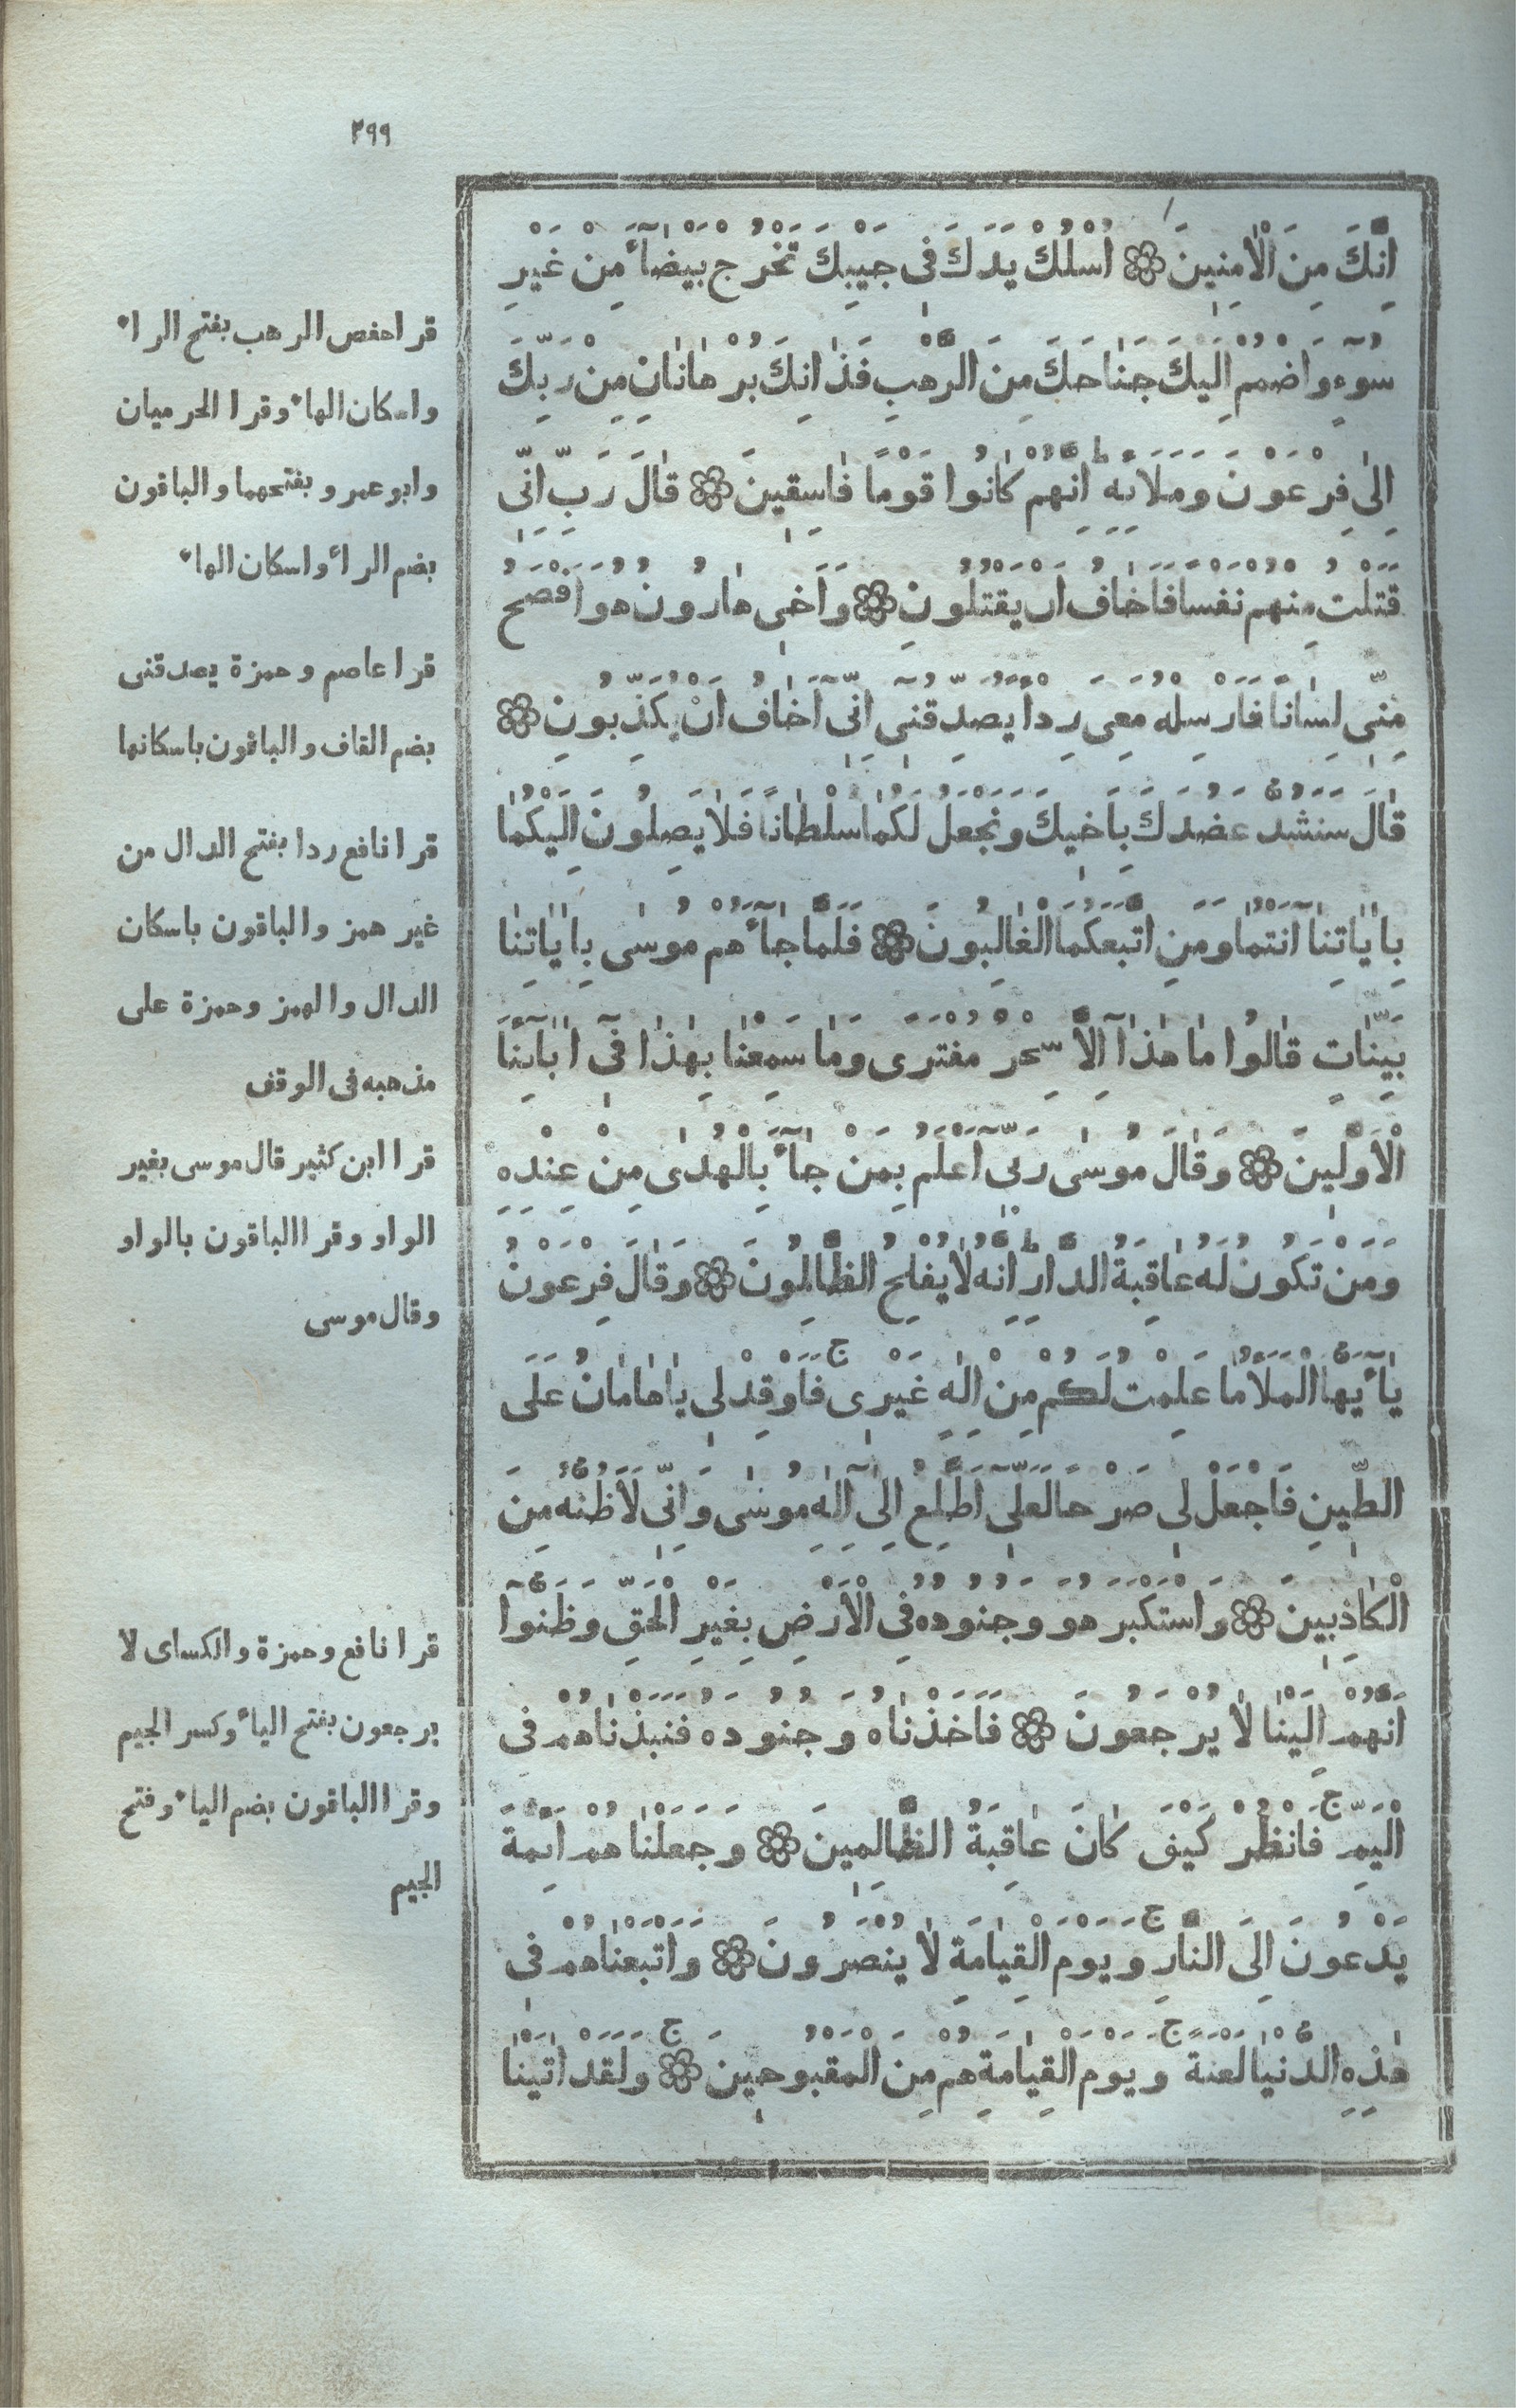 ٢٩٩
اِنَّكَ مِنَ الْاٰمِنِينَ ۝ اُسْلُكْ يَدَكَ فِى جَيْبِكَ تَخْرُجْ بَيْضَآءَ مِنْ غَيْرِ
سُوٓءٍ وَاضْمُمْ اِلَيْكَ جَنٰاحَكَ مِنَ الرَّهْبِ فَذٰانِكَ بُرْهٰانٰانِ مِنْ رَبِّكَ
اِلىٰ فِرْعَوْنَ وَمَلَائِهِ ط اِنَّهُمْ كٰانُوا قَوْمًا فٰاسِقِينَ ۝ قٰالَ رَبِّ اِنِّى
قَتَلْتُ مِنْهُمْ نَفْسًا فَاَخٰافُ اَنْ يَقْتُلُونِ ۝ وَاَخِى هٰارُونُ هُوَ اَفْصَحُ
مِنِّى لِسٰانًا فَاَرْسِلْهُ مَعِىَ رِدْاً يُصَدِّقُنِىٓ اِنِّىٓ اَخٰافُ اَنْ يُكَذِّبُونِ ۝
قٰالَ سَنَشُدُّ عَضُدَكَ بِاَخِيكَ وَنَجْعَلُ لَكُمٰا سُلْطٰانًا فَلٰا يَصِلُونَ اِلَيْكُمٰا
بِاٰيٰاتِنٰآ اَنْتُمٰا وَمَنِ اتَّبَعَكُمَا الْغٰالِبُونَ ۝ فَلَمَّا جٰآءَهُمْ مُوسٰى بِاٰيٰاتِنٰا
بَيِّنٰاتٍ قٰالُوا مٰا هٰذٰآ اِلَّا سِحْرٌ مُفْتَرًى وَمٰا سَمِعْنٰا بِهٰذٰا فِىٓ اٰبٰآئِنَا
الْاَوَّلِينَ ۝ وَقٰالَ مُوسٰى رَبِّىٓ اَعْلَمُ بِمَنْ جٰآءَ بِالْهُدٰى مِنْ عِنْدِهِ
وَمَنْ تَكُونُ لَهُ عٰاقِبَةُ الدَّارِ ط اِنَّهُ لٰا يُفْلِحُ الظَّالِمُونَ ۝ وَقٰالَ فِرْعَوْنُ
يٰآ اَيُّهَا الْمَلَاُ مٰا عَلِمْتُ لَكُمْ مِنْ اِلٰهٍ غَيْرِى ج فَاَوْقِدْ لِى يٰا هٰامٰانُ عَلَى
الطِّينِ فَاجْعَلْ لِى صَرْحًا لَعَلِّىٓ اَطَّلِعُ اِلىٰٓ اِلٰهِ مُوسٰى وَاِنِّى لَاَظُنُّهُ مِنَ
الْكٰاذِبِينَ ۝ وَاسْتَكْبَرَ هُوَ وَجُنُودُهُ فِى الْاَرْضِ بِغَيْرِ الْحَقِّ وَظَنُّوٓا
اَنَّهُمْ اِلَيْنٰا لٰا يُرْجَعُونَ ۝ فَاَخَذْنٰاهُ وَجُنُودَهُ فَنَبَذْنٰاهُمْ فِى
الْيَمِّ ج فَانْظُرْ كَيْفَ كٰانَ عٰاقِبَةُ الظَّالِمِينَ ۝ وَجَعَلْنٰاهُمْ اَئِمَّةً
يَدْعُونَ اِلَى النَّارِ ج وَيَوْمَ الْقِيٰامَةِ لٰا يُنْصَرُونَ ۝ وَاَتْبَعْنٰاهُمْ فِى
هٰذِهِ الدُّنْيٰا لَعْنَةً ج وَيَوْمَ الْقِيٰامَةِ هُمْ مِنَ الْمَقْبُوحِينَ ج ۝ وَلَقَدْ اٰتَيْنٰا
قرا حفص الرهب بفتح الراء
واسكان الهاء وقرا الحرميان
وابو عمرو بفتحهما والباقون
بضم الراء واسكان الهاء
قرا عاصم وحمزة يصدقنى
بضم القاف والباقون باسكانها
قرا نافع ردا بفتح الدال من
غير همز والباقون باسكان
الدال والهمز وحمزة على
مذهبه فى الوقف
قرا ابن كثير قال موسى بغير
الواو وقرا الباقون بالواو
وقال موسى
قرا نافع وحمزة والكساى لا
يرجعون بفتح الياء وكسر الجيم
وقرا الباقون بضم الياء وفتح
الجيم